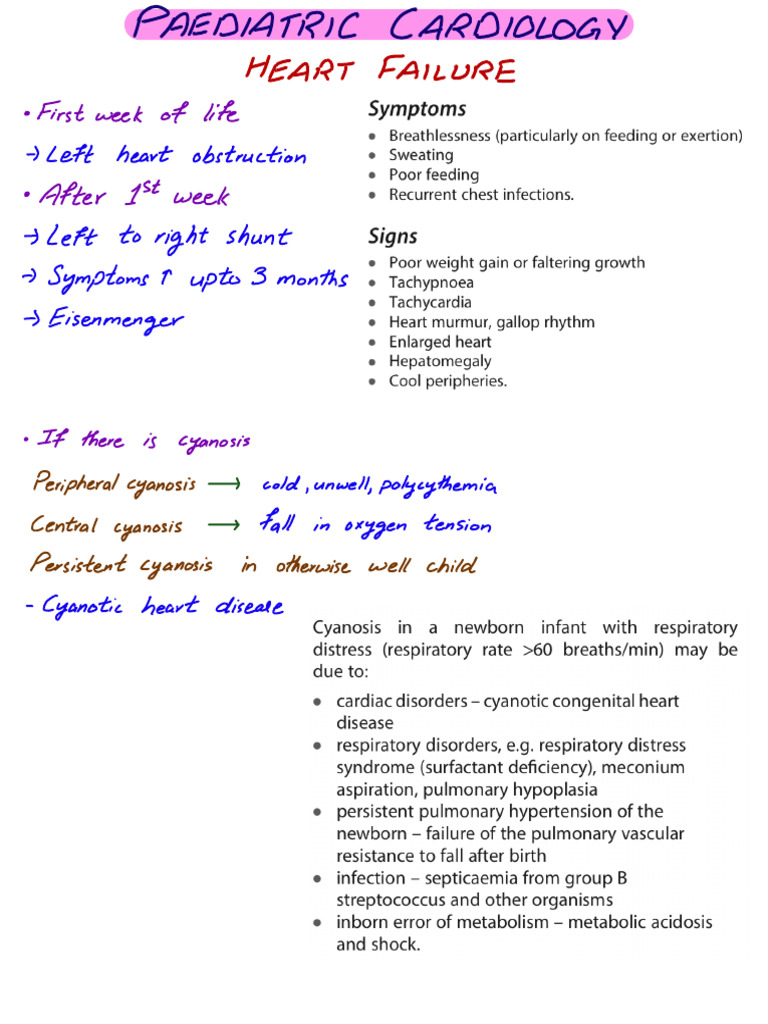 PAEDIATRIC CARDIOLOGY
HEART FAILURE
• First week of life
→ Left heart obstruction
• After 1st week
→ Left to right shunt
→ Symptoms ↑ upto 3 months
→ Eisenmenger
Symptoms
• Breathlessness (particularly on feeding or exertion)
• Sweating
• Poor feeding
• Recurrent chest infections.
Signs
• Poor weight gain or faltering growth
• Tachypnoea
• Tachycardia
• Heart murmur, gallop rhythm
• Enlarged heart
• Hepatomegaly
• Cool peripheries.
• If there is cyanosis
Peripheral cyanosis → cold, unwell, polycythemia
Central cyanosis → fall in oxygen tension
Persistent cyanosis in otherwise well child
- Cyanotic heart disease
Cyanosis in a newborn infant with respiratory
distress (respiratory rate >60 breaths/min) may be
due to:
• cardiac disorders – cyanotic congenital heart
disease
• respiratory disorders, e.g. respiratory distress
syndrome (surfactant deficiency), meconium
aspiration, pulmonary hypoplasia
• persistent pulmonary hypertension of the
newborn – failure of the pulmonary vascular
resistance to fall after birth
• infection – septicaemia from group B
streptococcus and other organisms
• inborn error of metabolism – metabolic acidosis
and shock.